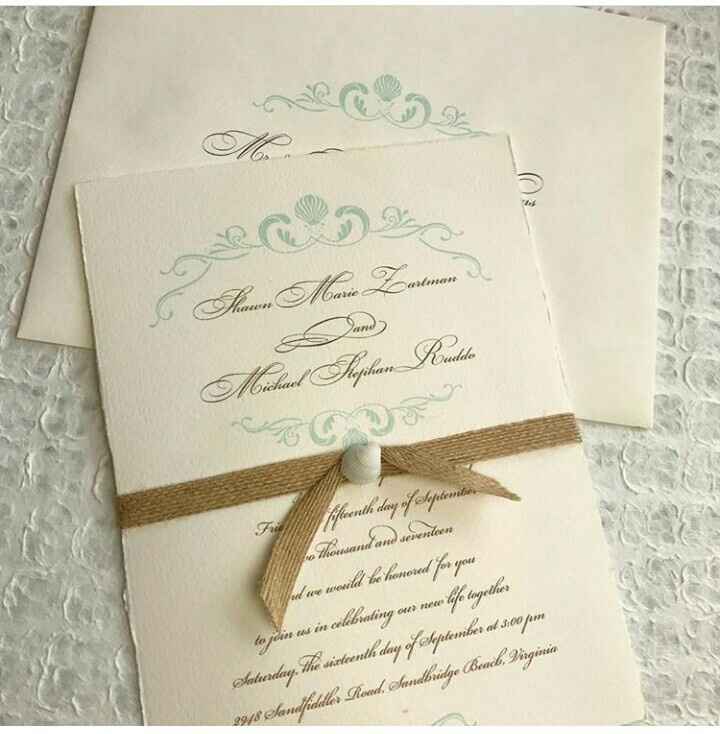 Shawn Marie Zartman
and
Michael Stephan Ruddo
fifteenth day of September
thousand and seventeen
we would be honored for you
to join us in celebrating our new life together
Saturday, the sixteenth day of September at 3:00 pm
2948 Sandfiddler Road, Sandbridge Beach, Virginia